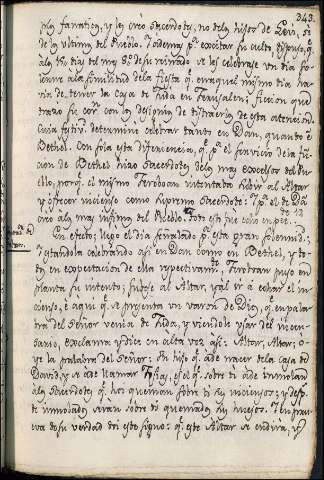 343.
fanatico, y les crio Sacerdotes, no delos hijos de Levi, si
de lo ultimo del Pueblo. Y ademas pª excitar su culto dispuso, qᵉ
alos 15 dias del mes 8º de su reinado se les celebrase un dia so-
lemne ala similitud de la fiesta qᵉ en aquel mismo dia ha-
via de tener la Casa de Juda en Jerusalen; ficcion que
trazó su corⁿ con los designios de distraerlos de esta atencion.
Cuia festivᵈ determinó celebrar tanto en Dan, quanto en
Bethel. Con sola esta diferencia, qᵉ pª el servicio de la fun-
cion de Bethel hizo Sacerdotes delos mas excelsos del Pue-
blo, porqᵉ el mismo Jeroboan intentaba subir al Altar,
y ofrecer incienso como supremo Sacerdote: y pª el de Dan
creó alos mas infimo del Pueblo. Todo esto fue
En efecto; llegó el dia señalado pª esta gran solemnidᵈ;
y estandola celebrando asi en Dan como en Bethel, y to-
do en expectacion de ella respectivamᵗᵉ, Jeroboan puso en
planta su intento; subese al Altar, y al ir á echar el in-
cienso, é aqui qᵉ se presenta un varon de Dios, qᵉ en pala-
bra del Señor venia de Juda, y viendole usar del incen-
sario, exclama y dice en alta voz asi: Altar, Altar; o-
ye la palabra del Señor: Un hijo qᵉ ade nacer dela Casa de
David, y se ade llamar Josias, es el qᵉ sobre ti ade inmolar
alos Sacerdotes qᵉ hoi queman sobre ti sus inciensos; y desp.ˢ
de inmolados serán sobre ti quemados sus huesos. Y en prue-
va de su verdad doi este signo: qᵉ este Altar se endirá, y